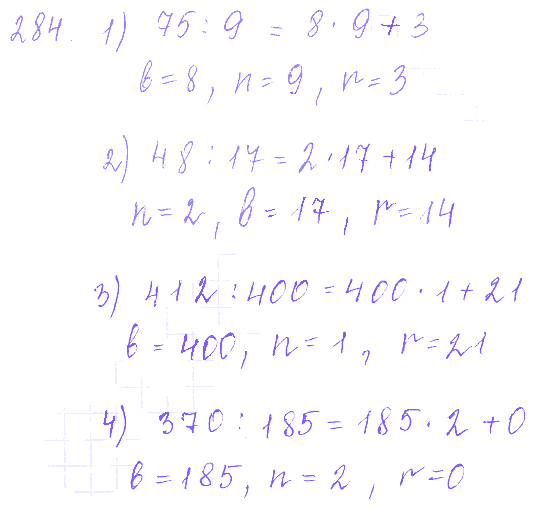 284. 1) 75 : 9 = 8 · 9 + 3
в = 8, n = 9, r = 3
2) 48 : 17 = 2 · 17 + 14
n = 2, в = 17, r = 14
3) 412 : 400 = 400 · 1 + 21
в = 400, n = 1, r = 21
4) 370 : 185 = 185 · 2 + 0
в = 185, n = 2, r = 0